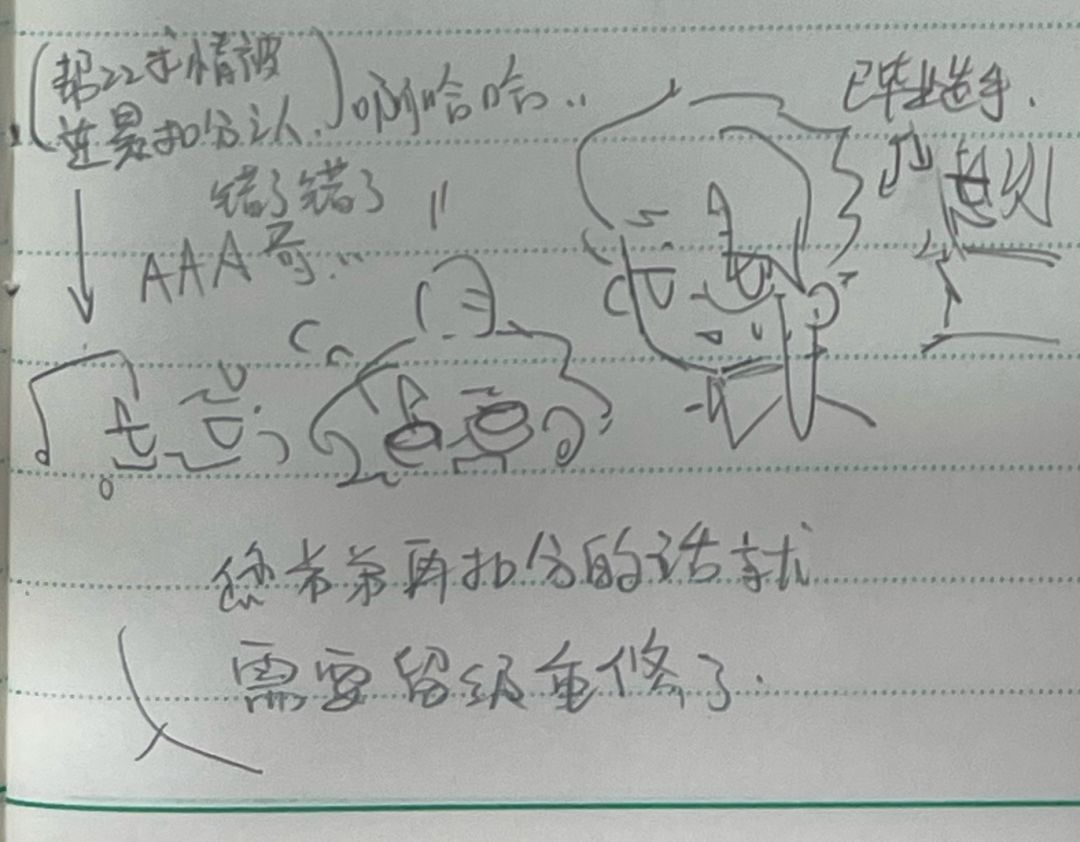 (帮22求情被
连累扣分之人.)
啊哈哈..
错了错了
AAA哥...
已毕业选手.
您弟弟再扣分的话就
需要留级重修了.